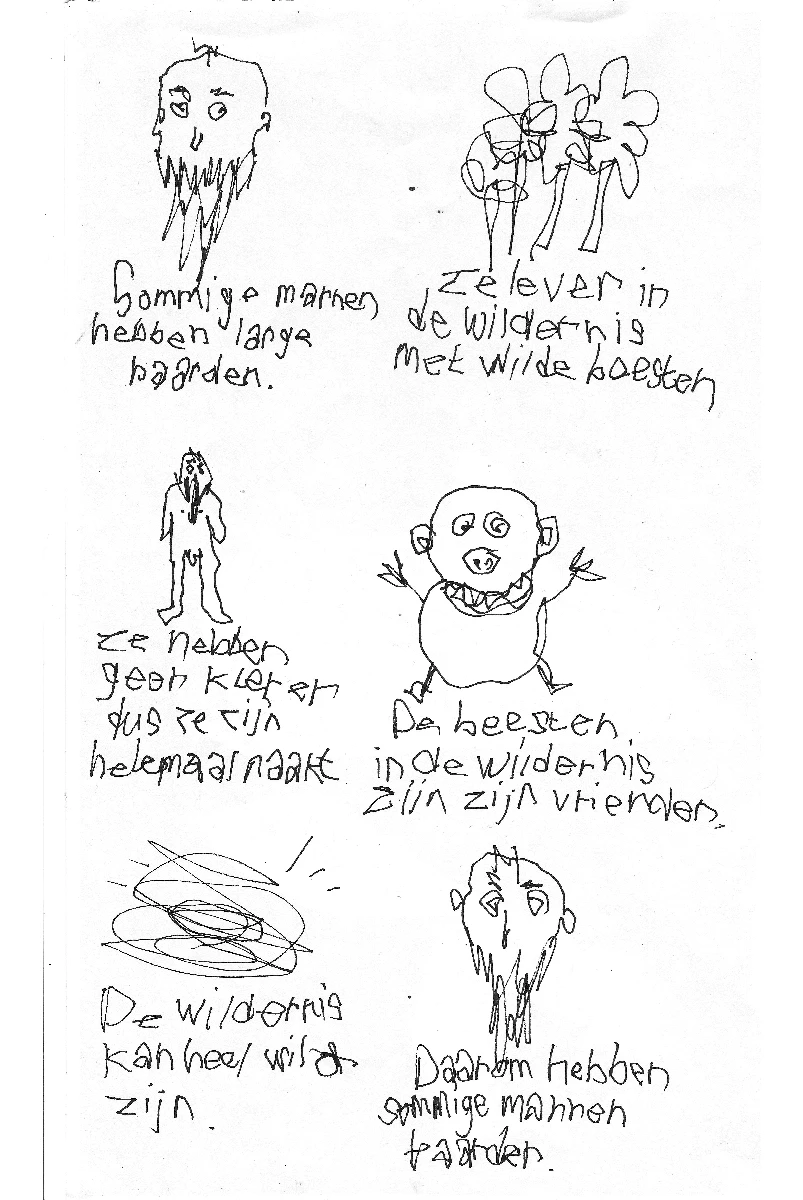 Sommige mannen
hebben lange
baarden.
Ze leven in
de wildernis
met wilde beesten
Ze hebben
geen kleren
dus ze zijn
helemaal naakt
De beesten
in de wildernis
zijn zijn vrienden.
De wildernis
kan heel wild
zijn.
Daarom hebben
sommige mannen
baarden.